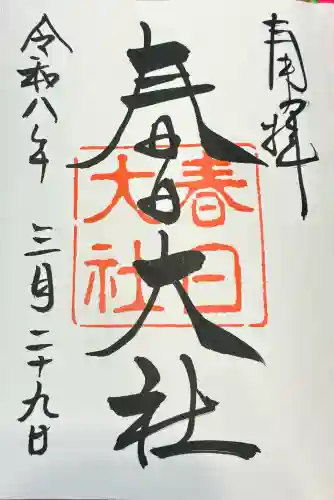 奉拝
春日大社
春日
大社
令和八年 三月二十九日